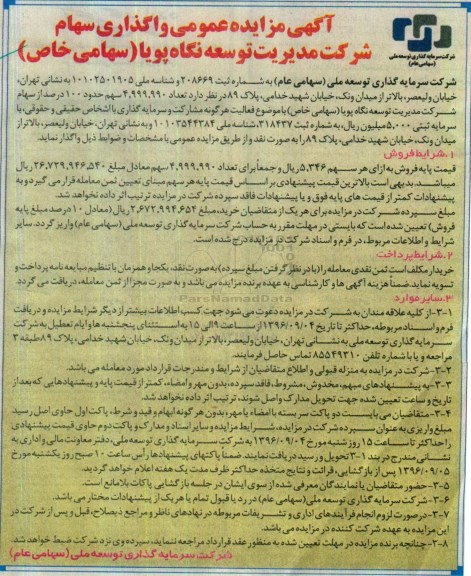 آگهی مزایده عمومی واگذاری سهام
شرکت مدیریت توسعه نگاه پویا (سهامی خاص)
شرکت سرمایه گذاری توسعه ملی
(سهامی عام)
شرکت سرمایه گذاری توسعه ملی (سهامی عام) به شماره ثبت ۲۰۸۶۶۹ و شناسه ملی ۱۰۱۰۲۵۰۱۹۰۵ به نشانی تهران،
خیابان ولیعصر، بالاتر از میدان ونک، خیابان شهید خدامی، پلاک ۸۹ در نظر دارد تعداد ۴,۹۹۹,۹۹۰ سهم حدود ۱۰۰ درصد از سهام
شرکت مدیریت توسعه نگاه پویا (سهامی خاص) با موضوع فعالیت هرگونه مشارکت و سرمایه گذاری با اشخاص حقیقی و حقوقی، با
سرمایه ثبتی ۵,۰۰۰ میلیون ریال، به شماره ثبت ۳۱۸۴۳۷، شناسه ملی ۱۰۱۰۳۵۴۴۳۸۴ و به نشانی تهران، خیابان ولیعصر، بالاتر از
میدان ونک، خیابان شهید خدامی، پلاک ۸۹ را به صورت نقد و از طریق مزایده عمومی با مشخصات و ضوابط ذیل واگذار نماید.
۱. شرایط فروش
قیمت پایه فروش به ازای هر سهم ۵,۳۴۶ ریال و جمعاً برای تعداد ۴,۹۹۹,۹۹۰ سهم معادل مبلغ ۲۶,۷۲۹,۹۴۶,۵۴۰ ریال
میباشد. بدیهی است بالاترین قیمت پیشنهادی بر اساس قیمت پایه هر سهم مبنای تعیین ثمن معامله قرار می گیرد و به
پیشنهادات کمتر از قیمت های پایه فوق و یا پیشنهادات فاقد سپرده شرکت در مزایده ترتیب اثر داده نخواهد شد.
مبلغ سپرده شرکت در مزایده برای هر یک از متقاضیان خرید، مبلغ ۲,۶۷۲,۹۹۴,۶۵۴ ریال (معادل ۱۰ درصد مبلغ پایه
فروش) تعیین شده است که بایستی در مهلت مقرر به حساب شرکت سرمایه گذاری توسعه ملی (سهامی عام) واریز گردد. سایر
شرایط و اطلاعات مربوط، در فرم و اسناد شرکت در مزایده درج شده است.
۲. شرایط پرداخت
خریدار مکلف است ثمن نقدی معامله را (با در نظر گرفتن مبلغ سپرده) به صورت نقد، یکجا و همزمان با تنظیم مبایعه نامه پرداخت و
تسویه نماید. ضمناً هزینه آگهی ها و کارشناسی به عهده برنده مزایده می باشد و به صورت مجزا از ثمن معامله، دریافت می گردد.
۳. سایر موارد
۳-۱- از کلیه علاقه مندان به شرکت در مزایده دعوت می شود جهت کسب اطلاعات بیشتر از دیگر شرایط مزایده و دریافت
فرم و اسناد مربوطه، حداکثر تا تاریخ ۱۳۹۶/۰۹/۰۴ از ساعت ۹ الی ۱۵ به استثنای پنجشنبه ها و ایام تعطیل به شرکت
سرمایه گذاری توسعه ملی به نشانی تهران، خیابان ولیعصر، بالاتر از میدان ونک، خیابان شهید خدامی، پلاک ۸۹ طبقه ۳
مراجعه و یا با شماره تلفن ۸۵۵۴۹۳۱۰ تماس حاصل فرمایند.
۳-۲- شرکت در مزایده به منزله قبولی و اطلاع متقاضیان از شرایط و مندرجات قرارداد مورد معامله می باشد.
۳-۳- به پیشنهادهای مبهم، مخدوش، مشروط، فاقد سپرده، بدون مهر و امضاء، کمتر از قیمت پایه و پیشنهادهایی که بعد از
تاریخ و ساعت تعیین شده جهت تحویل مدارک واصل شوند، ترتیب اثر داده نخواهد شد.
۳-۴- متقاضیان می بایست دو پاکت سربسته با امضاء یا مهر، بدون هر گونه ابهام و قید و شرط، پاکت اول حاوی اصل رسید
مبلغ واریزی به عنوان سپرده شرکت در مزایده، شرایط مزایده و سایر اسناد و مدارک و پاکت دوم حاوی قیمت پیشنهادی
را حداکثر تا ساعت ۱۵ روز شنبه مورخ ۱۳۹۶/۰۹/۰۴ به شرکت سرمایه گذاری توسعه ملی، دفتر معاونت مالی و اداری به
نشانی مندرج در بند ۳-۱ تحویل و رسید دریافت نمایند. ضمناً پاکتهای پیشنهادها رأس ساعت ۱۰ صبح روز یکشنبه مورخ
۱۳۹۶/۰۹/۰۵ پس از بازگشایی، قرائت و نتایج متخذه حداکثر ظرف مدت یک هفته اعلام خواهد گردید.
۳-۵- حضور متقاضیان یا نمایندگان معرفی شده از سوی ایشان در جلسه بازگشایی پاکات بلامانع است.
۳-۶- شرکت سرمایه گذاری توسعه ملی (سهامی عام) در رد یا قبول تمام یا هر یک از پیشنهادات مختار می باشد.
۳-۷- در صورت لزوم انجام فرآیندهای اداری و تشریفات مربوطه در نهادهای ناظر و مراجع ذیصلاح، قبل و پس از شرکت در
این مزایده به عهده شرکت کننده در مزایده می باشد.
۳-۸- چنانچه برنده مزایده در مهلت تعیین شده به منظور عقد قرارداد مراجعه ننماید، سپرده وی نزد شرکت ضبط خواهد شد.
شرکت سرمایه گذاری توسعه ملی (سهامی عام)
ParsNamadData